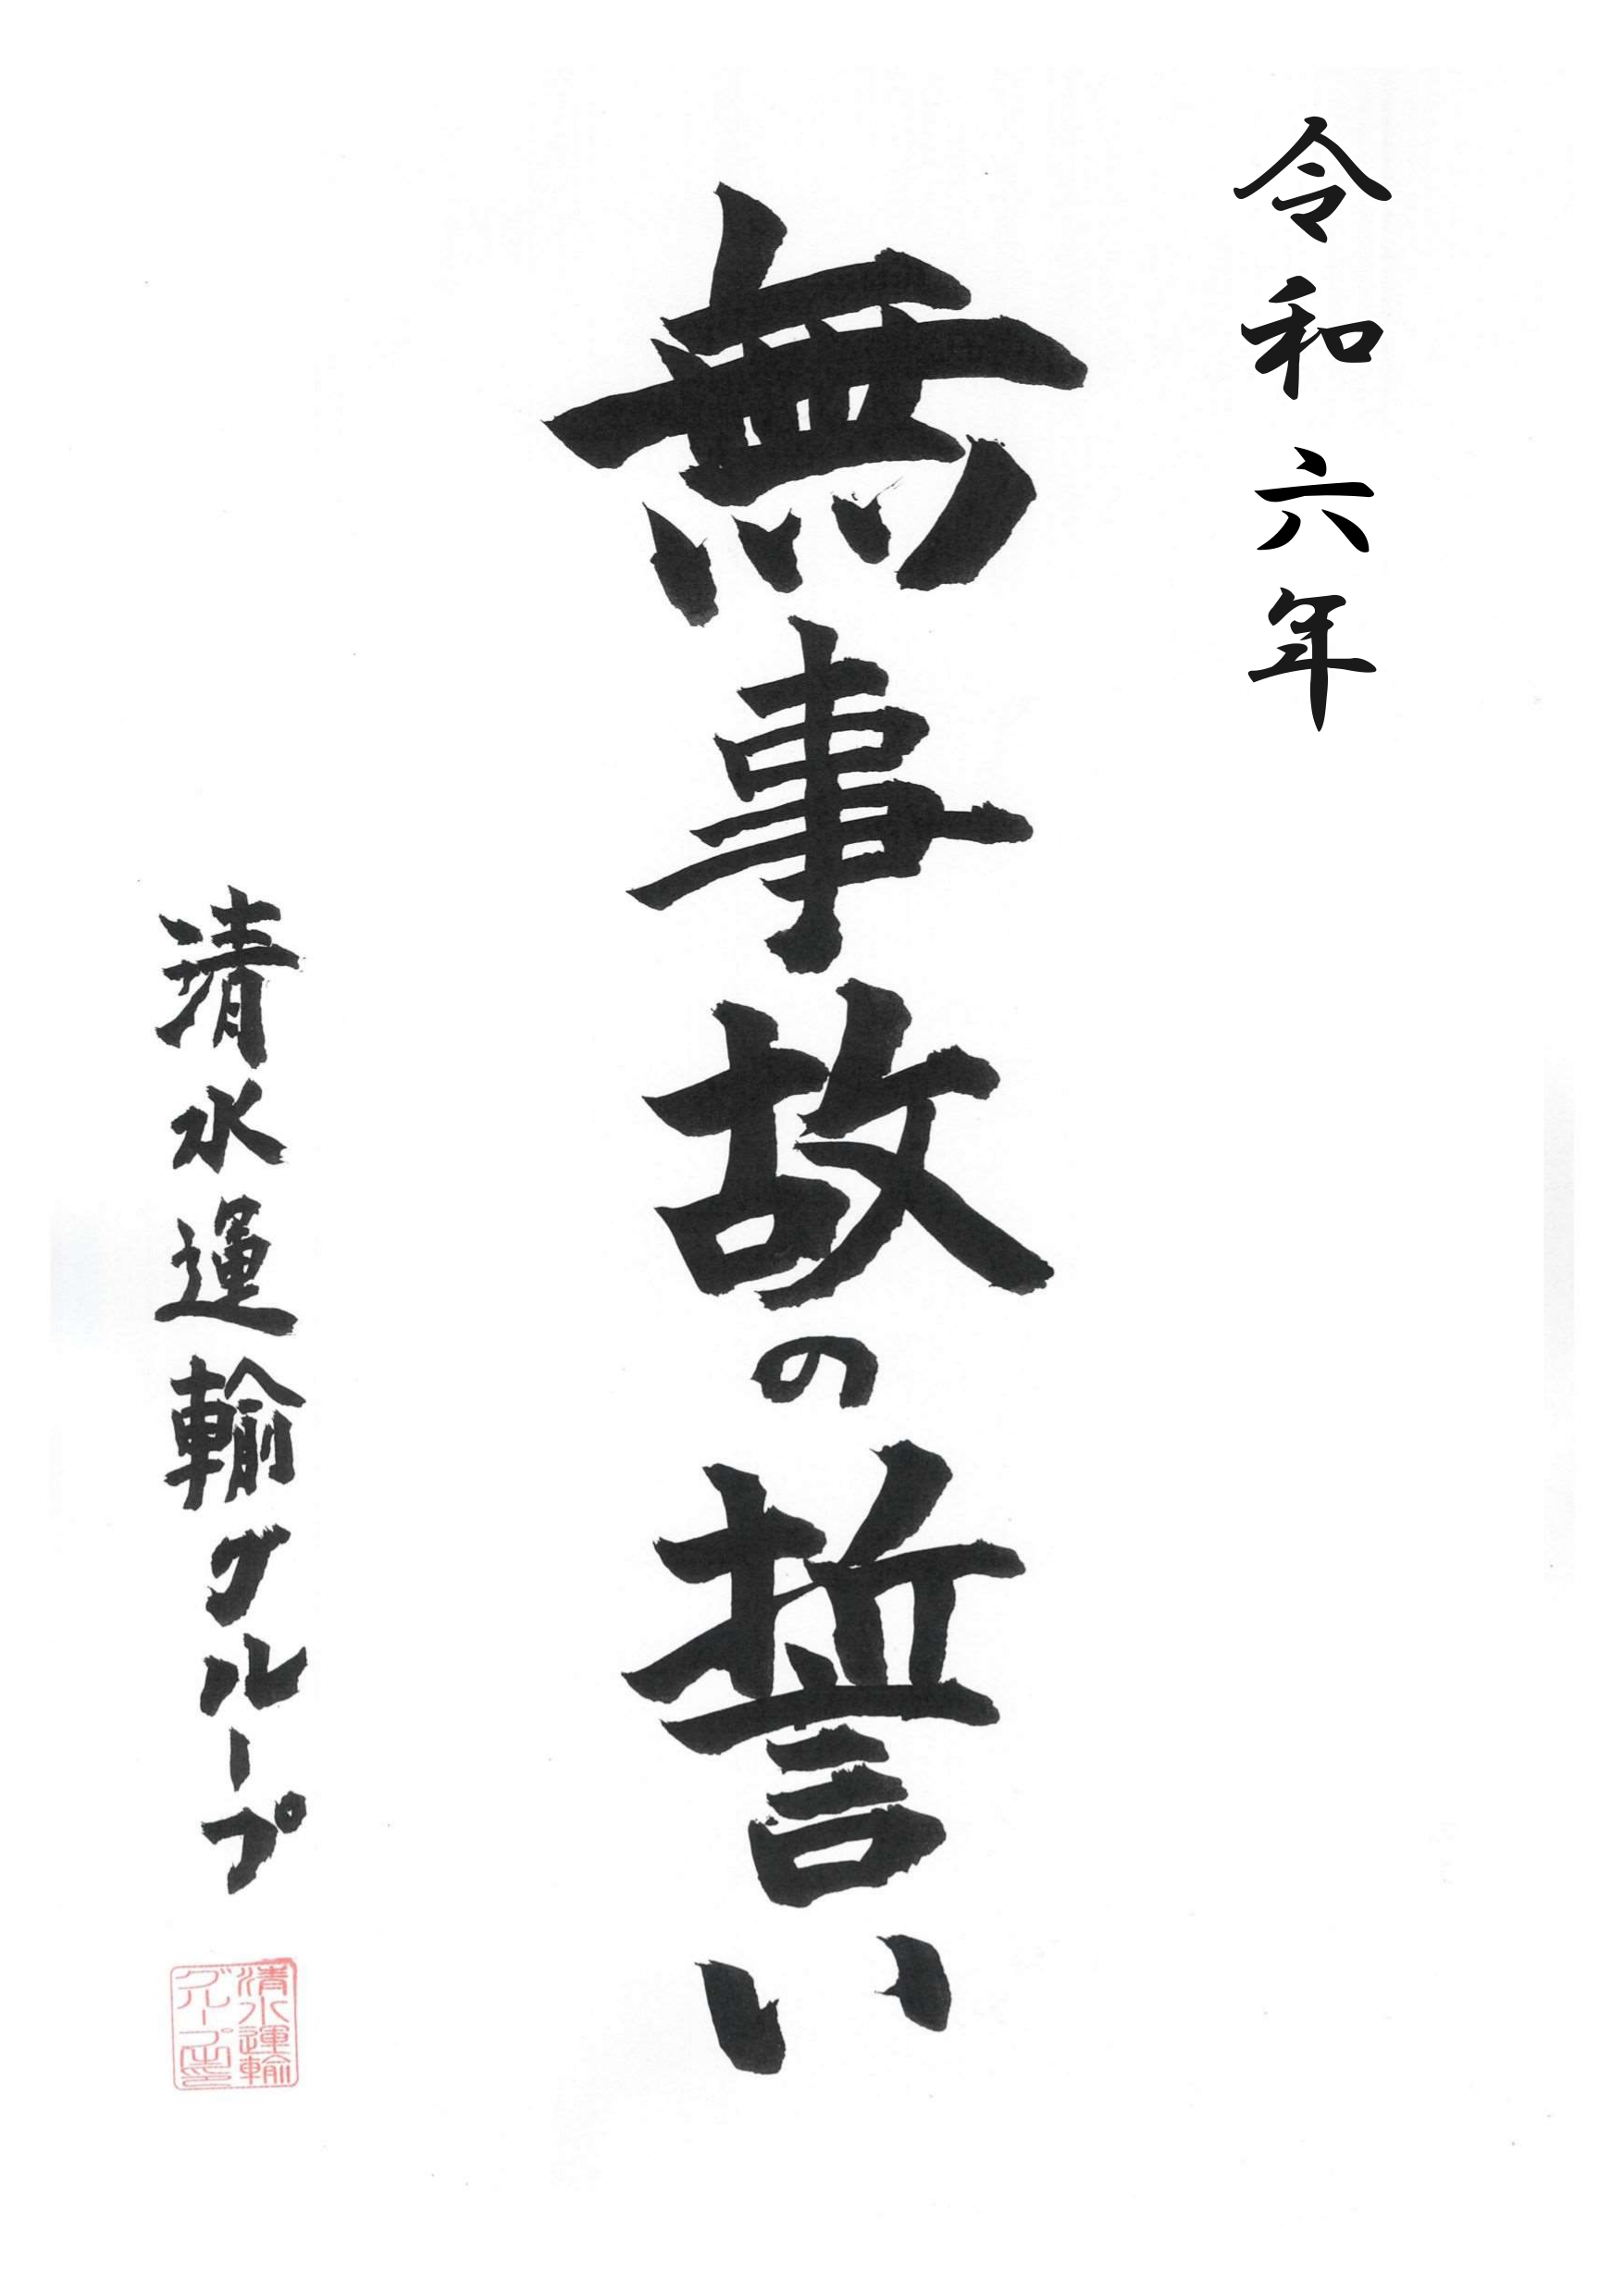 令和六年
無事故の誓い
清水運輸グループ
清水運輸
グループ印